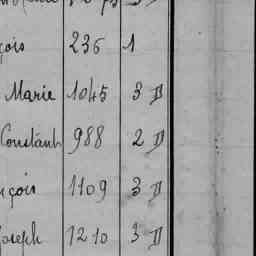 çois 236 1
Marie 1045 3 D
Constant 988 2 D
nçois 1109 3 D
Joseph 1210 3 D